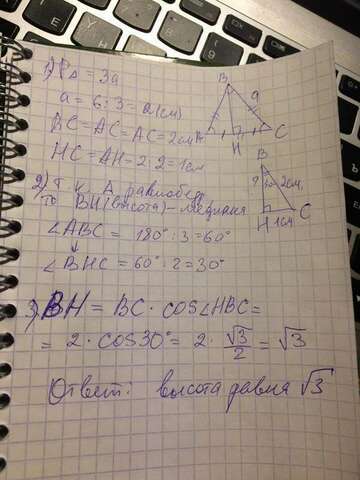 1) P△ = 3a
a = 6 : 3 = 2(см)
BC = AC = AC = 2см
HC = AH = 2 : 2 = 1см
2) Т. к. △ равнобер
то BH(высота) - медиана
∠ABC = 180° : 3 = 60°
↓
∠BHC = 60° : 2 = 30°
3) BH = BC · cos∠HBC =
= 2 · cos30° = 2 · √3/2 = √3
Ответ: высота равна √3
B
a
A
H
C
B
?
30°
2см,
H
1см
C